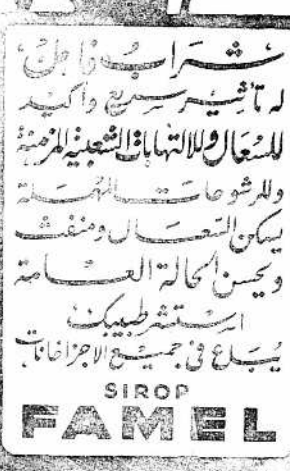 شراب فامل
له تأثير سريع واكيد
للسعال وللالتهابات الشعبية المزمنة
وللرشوحات المهملة
يسكن السعال ومنفث
ويحسن الحالة العامة
استشر طبيبك
يباع في جميع الاجزاخانات
SIROP
FAMEL